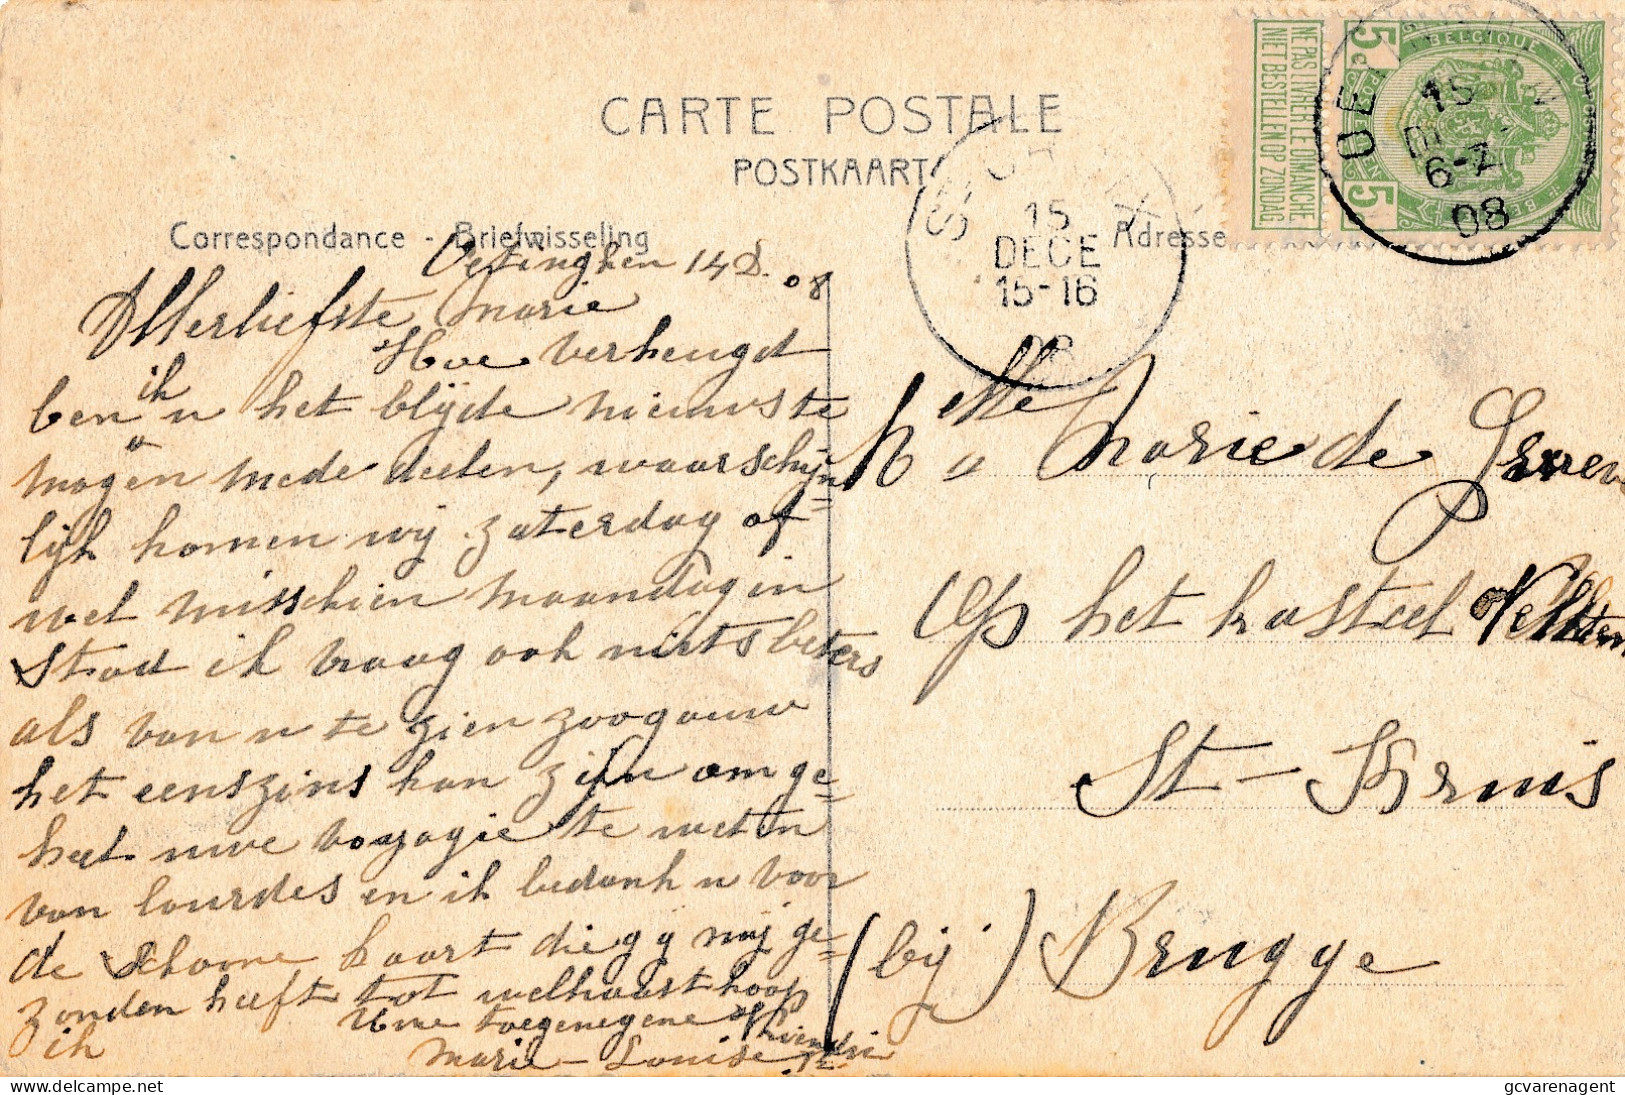 CARTE POSTALE
POSTKAART
Correspondance - Briefwisseling
Adresse
NE PAS LIVRER LE DIMANCHE
NIET BESTELLEN OP ZONDAG
BELGIQUE
5 5
15
6-7
08
15
DECE
15-16
08
Oetinghen 14 D. 08
Allerliefste Marie
Hoe verheugd
ben ik u het blijde nieuws te
mogen mede deelen, waarschijn=
lijk komen wij zaterdag of
wel misschien maandag in
stad ik vraag ook niets beters
als van u te zien zoogauw
het eenszins kan zijn om ge=
heel uwe voyagie te weten
van Lourdes en ik bedank u voor
de schone kaart die gij mij ge=
zonden heeft tot welhaast hoop
ik Uwe toegenegene Vriendin
Marie-Louise
Melle Marie de
Op het kasteel
St-Kruis
(bij) Brugge
gcvarenagent